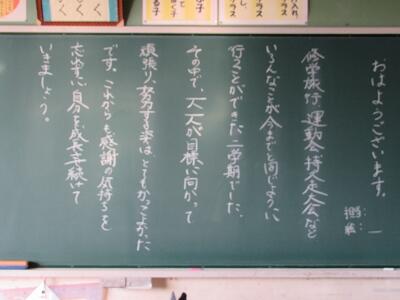 おはようございます。
修学旅行、運動会、持久走大会など
いろんなことが今までと同じように
行うことができた二学期でした。
その中で、一人一人が目標に向かって
頑張り、努力する姿は、とてもかっこよかった
です。これからも感謝の気持ちを
忘れずに自分を成長させ続けて
いきましょう。